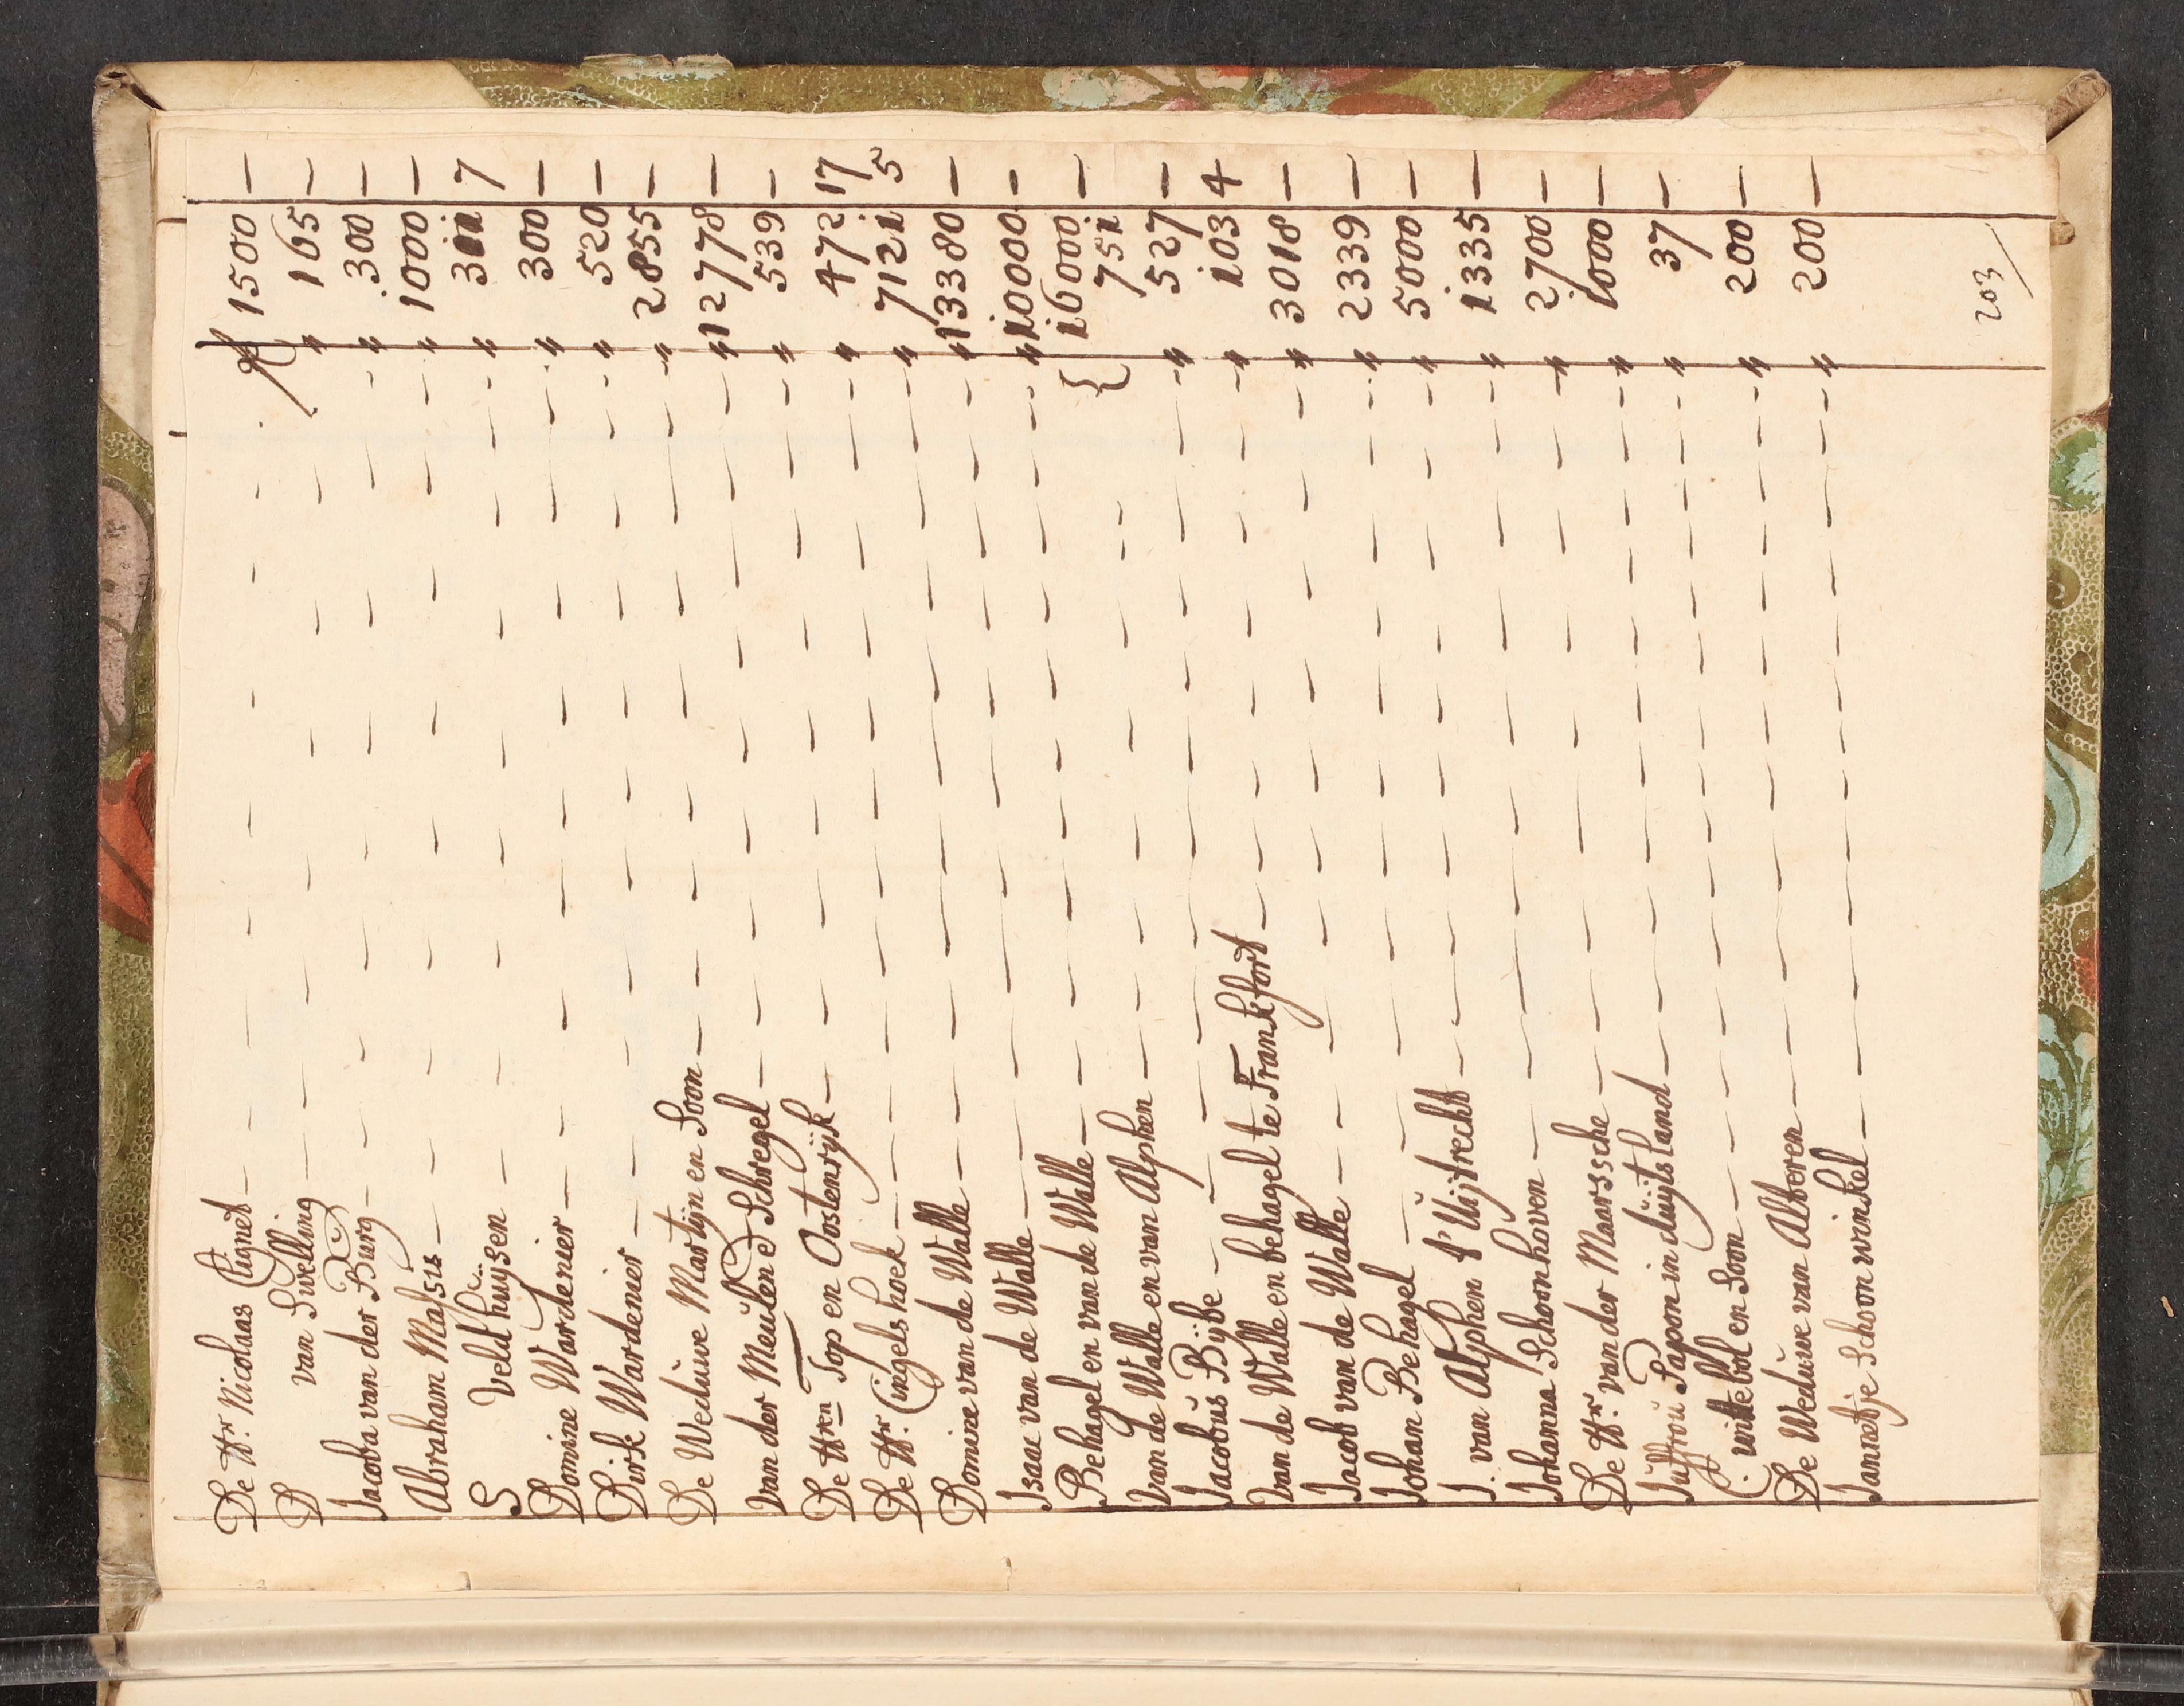 De Hr. Nicolaas Cúgnet — f 1500 —
D van Swelling — " 165 —
Jacoba van der Bŭrg — " 300 —
Abraham Massis — " 1000 —
S Veldhuijsen — " 3ii 7
Domine Wardenier — " 300 —
Dirk Wardenier — " 520 —
De Wedŭwe Martijn en Soon — " 2855 —
Van der Meŭlen & Schregel — " 12778 —
De Hren Top en Oostenrijk — " 539 —
De Hr. Cingelshoek — " 472 17
Domine van de Walle — " 712i 5
Isaac van de Walle — " 13380 —
Behagel en van de Walle — " i0000 —
Van de Walle en van Alphen — { i6000 —
75i
Jacobŭs Bijbe — " 527 —
Van de Walle en behagel te Frankfort — " i03 4
Jacob van de Walle — " 3018 —
Johan Behagel — " 2339 —
J. van Alphen t' Uijtrecht — " 5000 —
Johanna Schoonhoven — " i335 —
De Hr. van der Maarssche — " 2700 —
Jŭffroŭ Papon in dŭijtsland — " 1000 —
C. wittebol en Soon — " 37 —
De Wedŭwe van Alferen — " 200 —
Jannetje Schoonwinkel — " 200 —
203